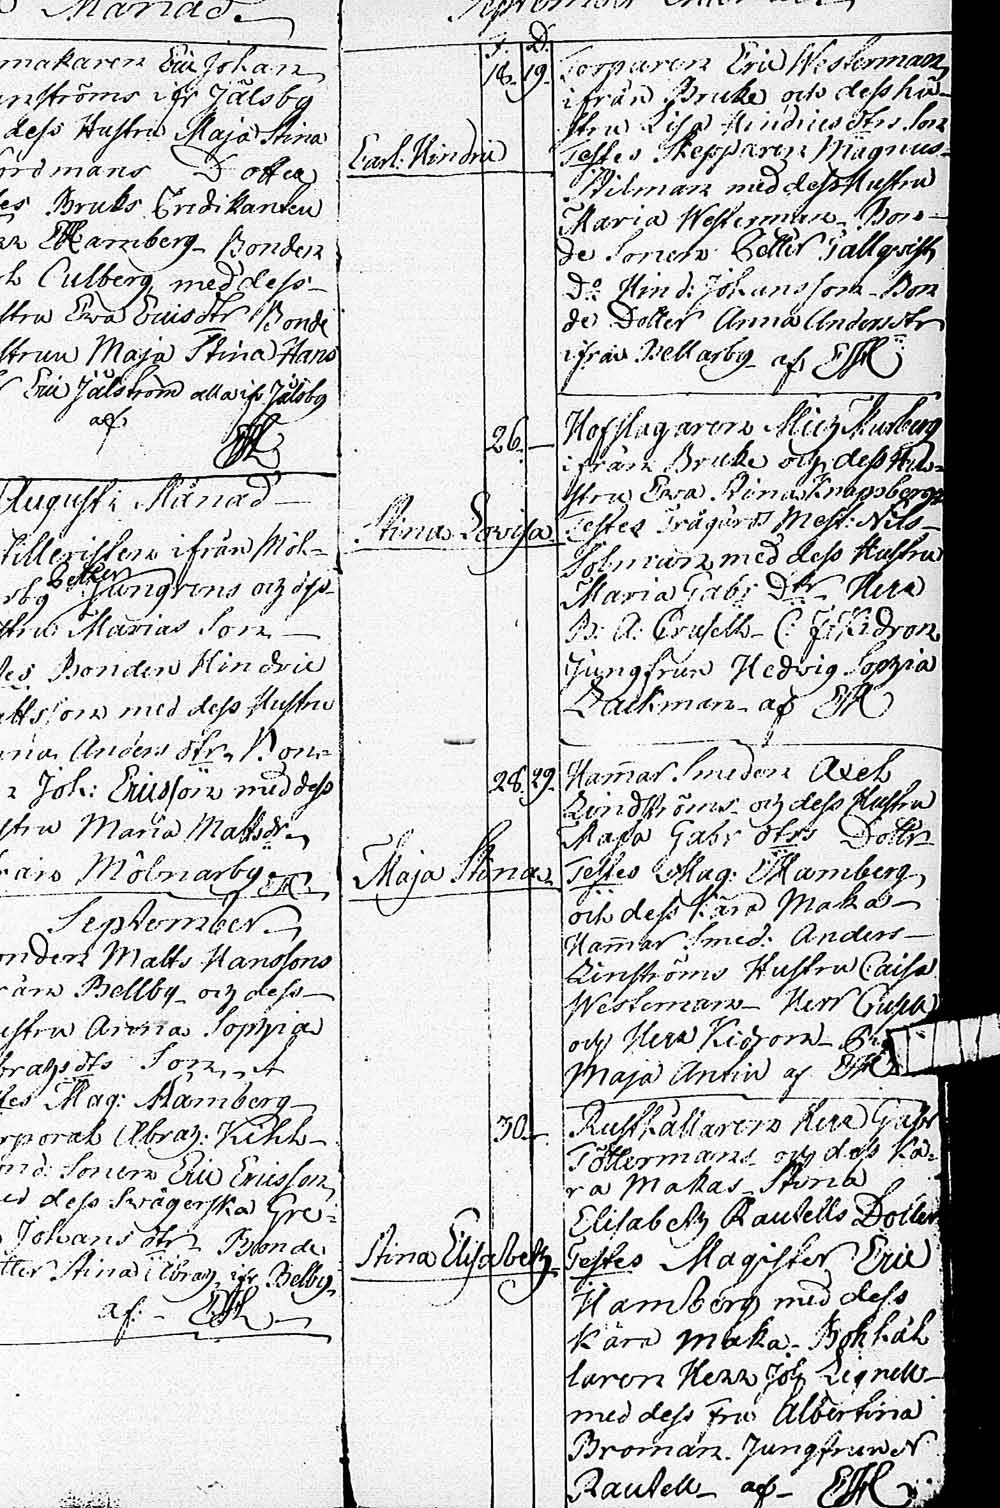 Månad.
makaren Eric Johan
ströms ifr Jälsby
dess Hustru Maja Stina
Nordmans Dotter
Bruks Predikanten
Hamberg Bonden
Culberg med dess
stru Ewa Ericsdtr Bonde
strun Maja Stina Hans
Eric Jälström alla ifr Jälsby
af
EH
Augusti Månad
ifrån Möl-
Petter
rby Ljungrens och dess
stru Marias Son
tes Bonden Hindric
attsson med dess Hustru
Anders dtr Bon-
Joh: Ericsson med dess
stru Maria Mattsdr
från Mölnarby EH
September
onden Matts Hanssons
från Bellby och dess
ustru Anna Sophia
Abrahsdts Son
tes Mag: Hamberg
rporal Abrah: Kihl-
ond: Sonen Eric Ericsson
med dess Swägerska Gre-
Johans dtr Bonde
tter Stina Abrah ifr Bellby
af EH
September
F. D.
18. 19.
Carl Hindric
Torparen Eric Westerman
ifrån Bruket och dess hu-
stru Lisa Hindricsdtrs Son
Testes Skepparen Magnus
Wilman med dess Hustru
Maria Westerman Bon-
de Sonen Petter Tallqvist
Do Hind: Johansson Bon
de Dotter Anna Andersdtr
ifrån Bellarby af EH
26.
Stina Lovisa
Hofslagaren Mich Murberg
ifrån Bruket och dess Hu-
stru Ewa Stina Knapsbergs
Testes Trägårds Mest: Nils
Tolman med dess Hustru
Maria Gabr Dtr Herr
B: A: Crusell C: F: Kidron
Jungfrun Hedvig Sophia
Backman af EH
28. 29.
Maja Stina
Hammar Smeden Axel
Lindströms och dess Hustru
Maja Gabr dtrs Dotter
Testes Mag: Hamberg
och dess Kära Maka
Hammar Smed: Anders
Linströms Hustru Caisa
Westerman Herr Crusell
och Herr Kidron
Maja Antin af EH
30.
Stina Elisabeth
Rusthållaren Herr Gabr
Töttermans och dess Kä-
ra Makas Stina
Elisabeth Rautells Dotter
Testes Magister Eric
Hamberg med dess
Kära Maka Bokhål
laren Herr Joh Lignell
med dess fru Albertina
Broman. Jungfrun N
Rautell af EH